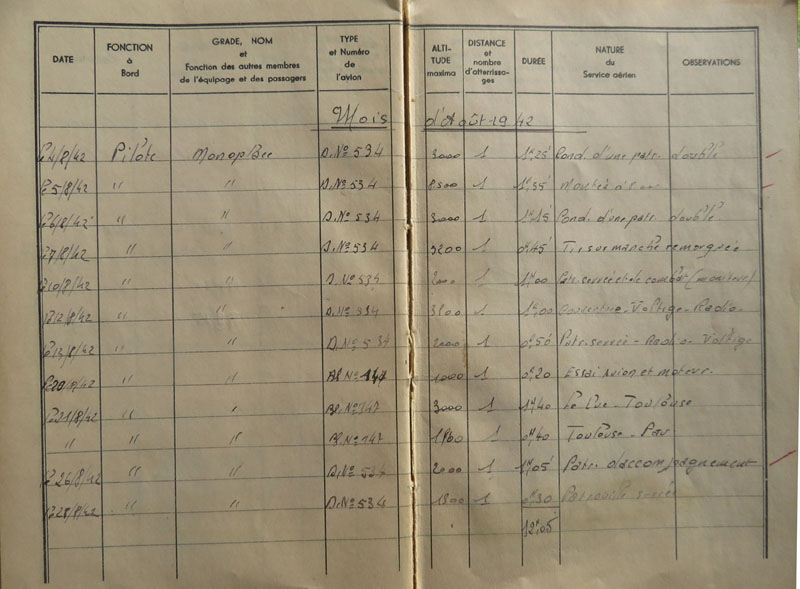 DATE FONCTION à Bord GRADE, NOM et Fonction des autres membres de l'équipage et des passagers TYPE et Numéro de l'avion ALTI- TUDE maxima DISTANCE et nombre d'atterrissa- ges DURÉE NATURE du Service aérien OBSERVATIONS
Mois d'Août 1942
4/8/42 Pilote Monoplace D.N° 534 3000 1 1h25 Cond. d'une patr. double
5/8/42 " " D.N° 534 8500 1 1h35 Montée à
6/8/42 " " D.N° 534 3000 1 1h15 Cond. d'une patr. double
7/8/42 " " D.N° 534 3200 1 0h45 Tir sur manche remorquée
10/8/42 " " D.N° 534 2000 1 1h00 Patr. serrée et de combat (moniteur)
12/8/42 " " D.N° 534 1 1h00 Voltige - Radio
13/8/42 " " D.N° 534 2000 1 0h50 Patr. serrée - Radio - Voltige
" " Bl. N° 147 1000 1 0h20 Essai avion et moteur
21/8/42 " " Bl. N° 147 3000 1 1h40 Le Luc - Toulouse
" " " Bl. N° 147 1 0h40 Toulouse - Pau
26/8/42 " " D.N° 534 2000 1 1h05 Patr. d'accompagnement
28/8/42 " " D.N° 534 1800 1 0h30 Patrouille serrée
12h05